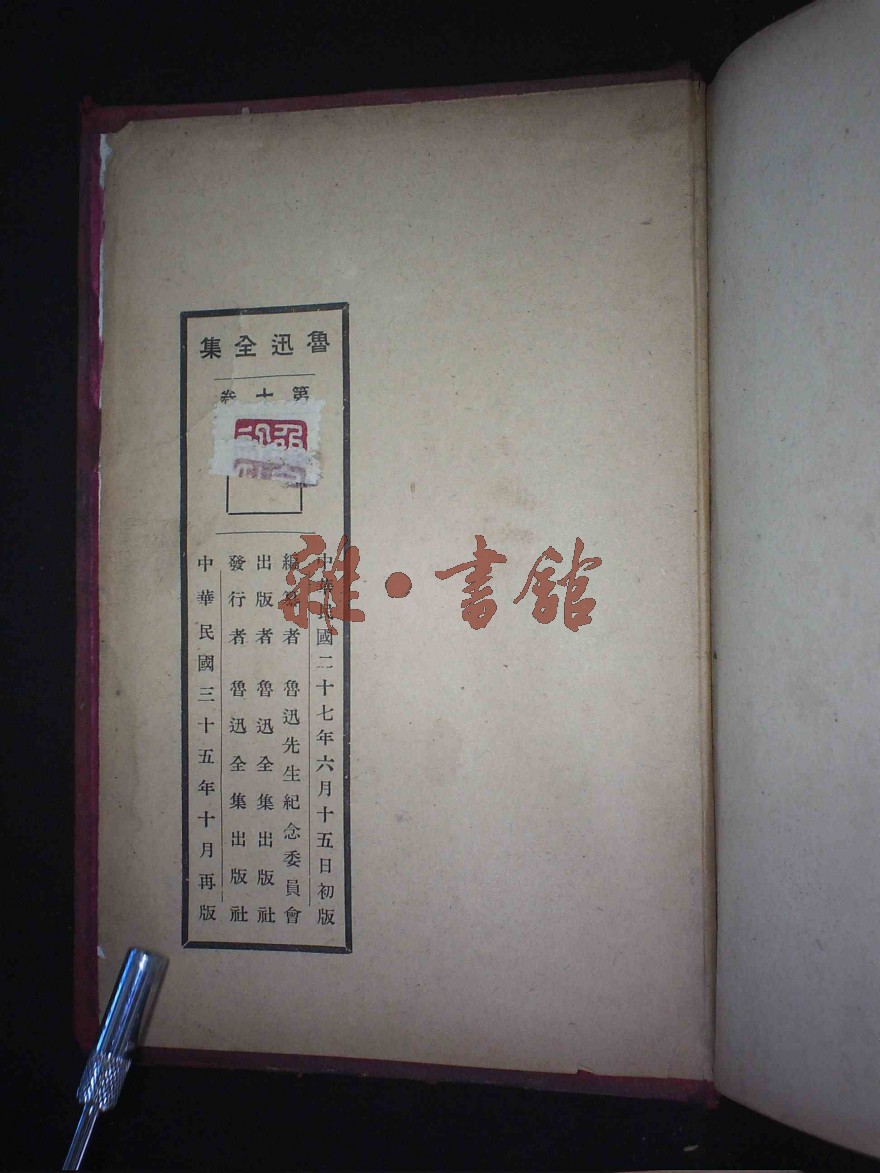 魯迅全集
第十卷
中華民國二十七年六月十五日初版
編纂者 魯迅先生紀念委員會
出版者 魯迅全集出版社
發行者 魯迅全集出版社
中華民國三十五年十月再版
雜·書館